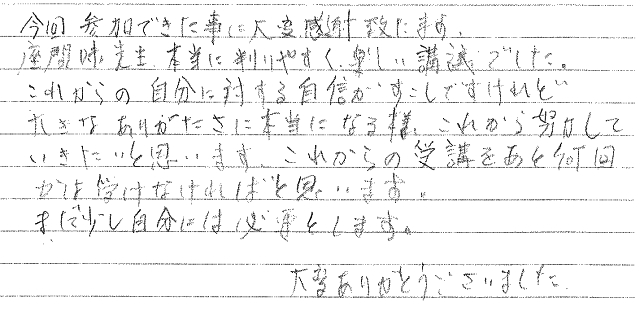 今回参加できた事に大変感謝致します。
座間味先生、本当に判りやすく、楽しい講演でした。
これからの自分に対する自信がすこしですけれど
大きなありがたさに本当になる様、これから努力して
いきたいと思います。これからの受講をあと何回
かは受けなければと思います。
まだ少し自分には必要とします。
大変ありがとうございました。